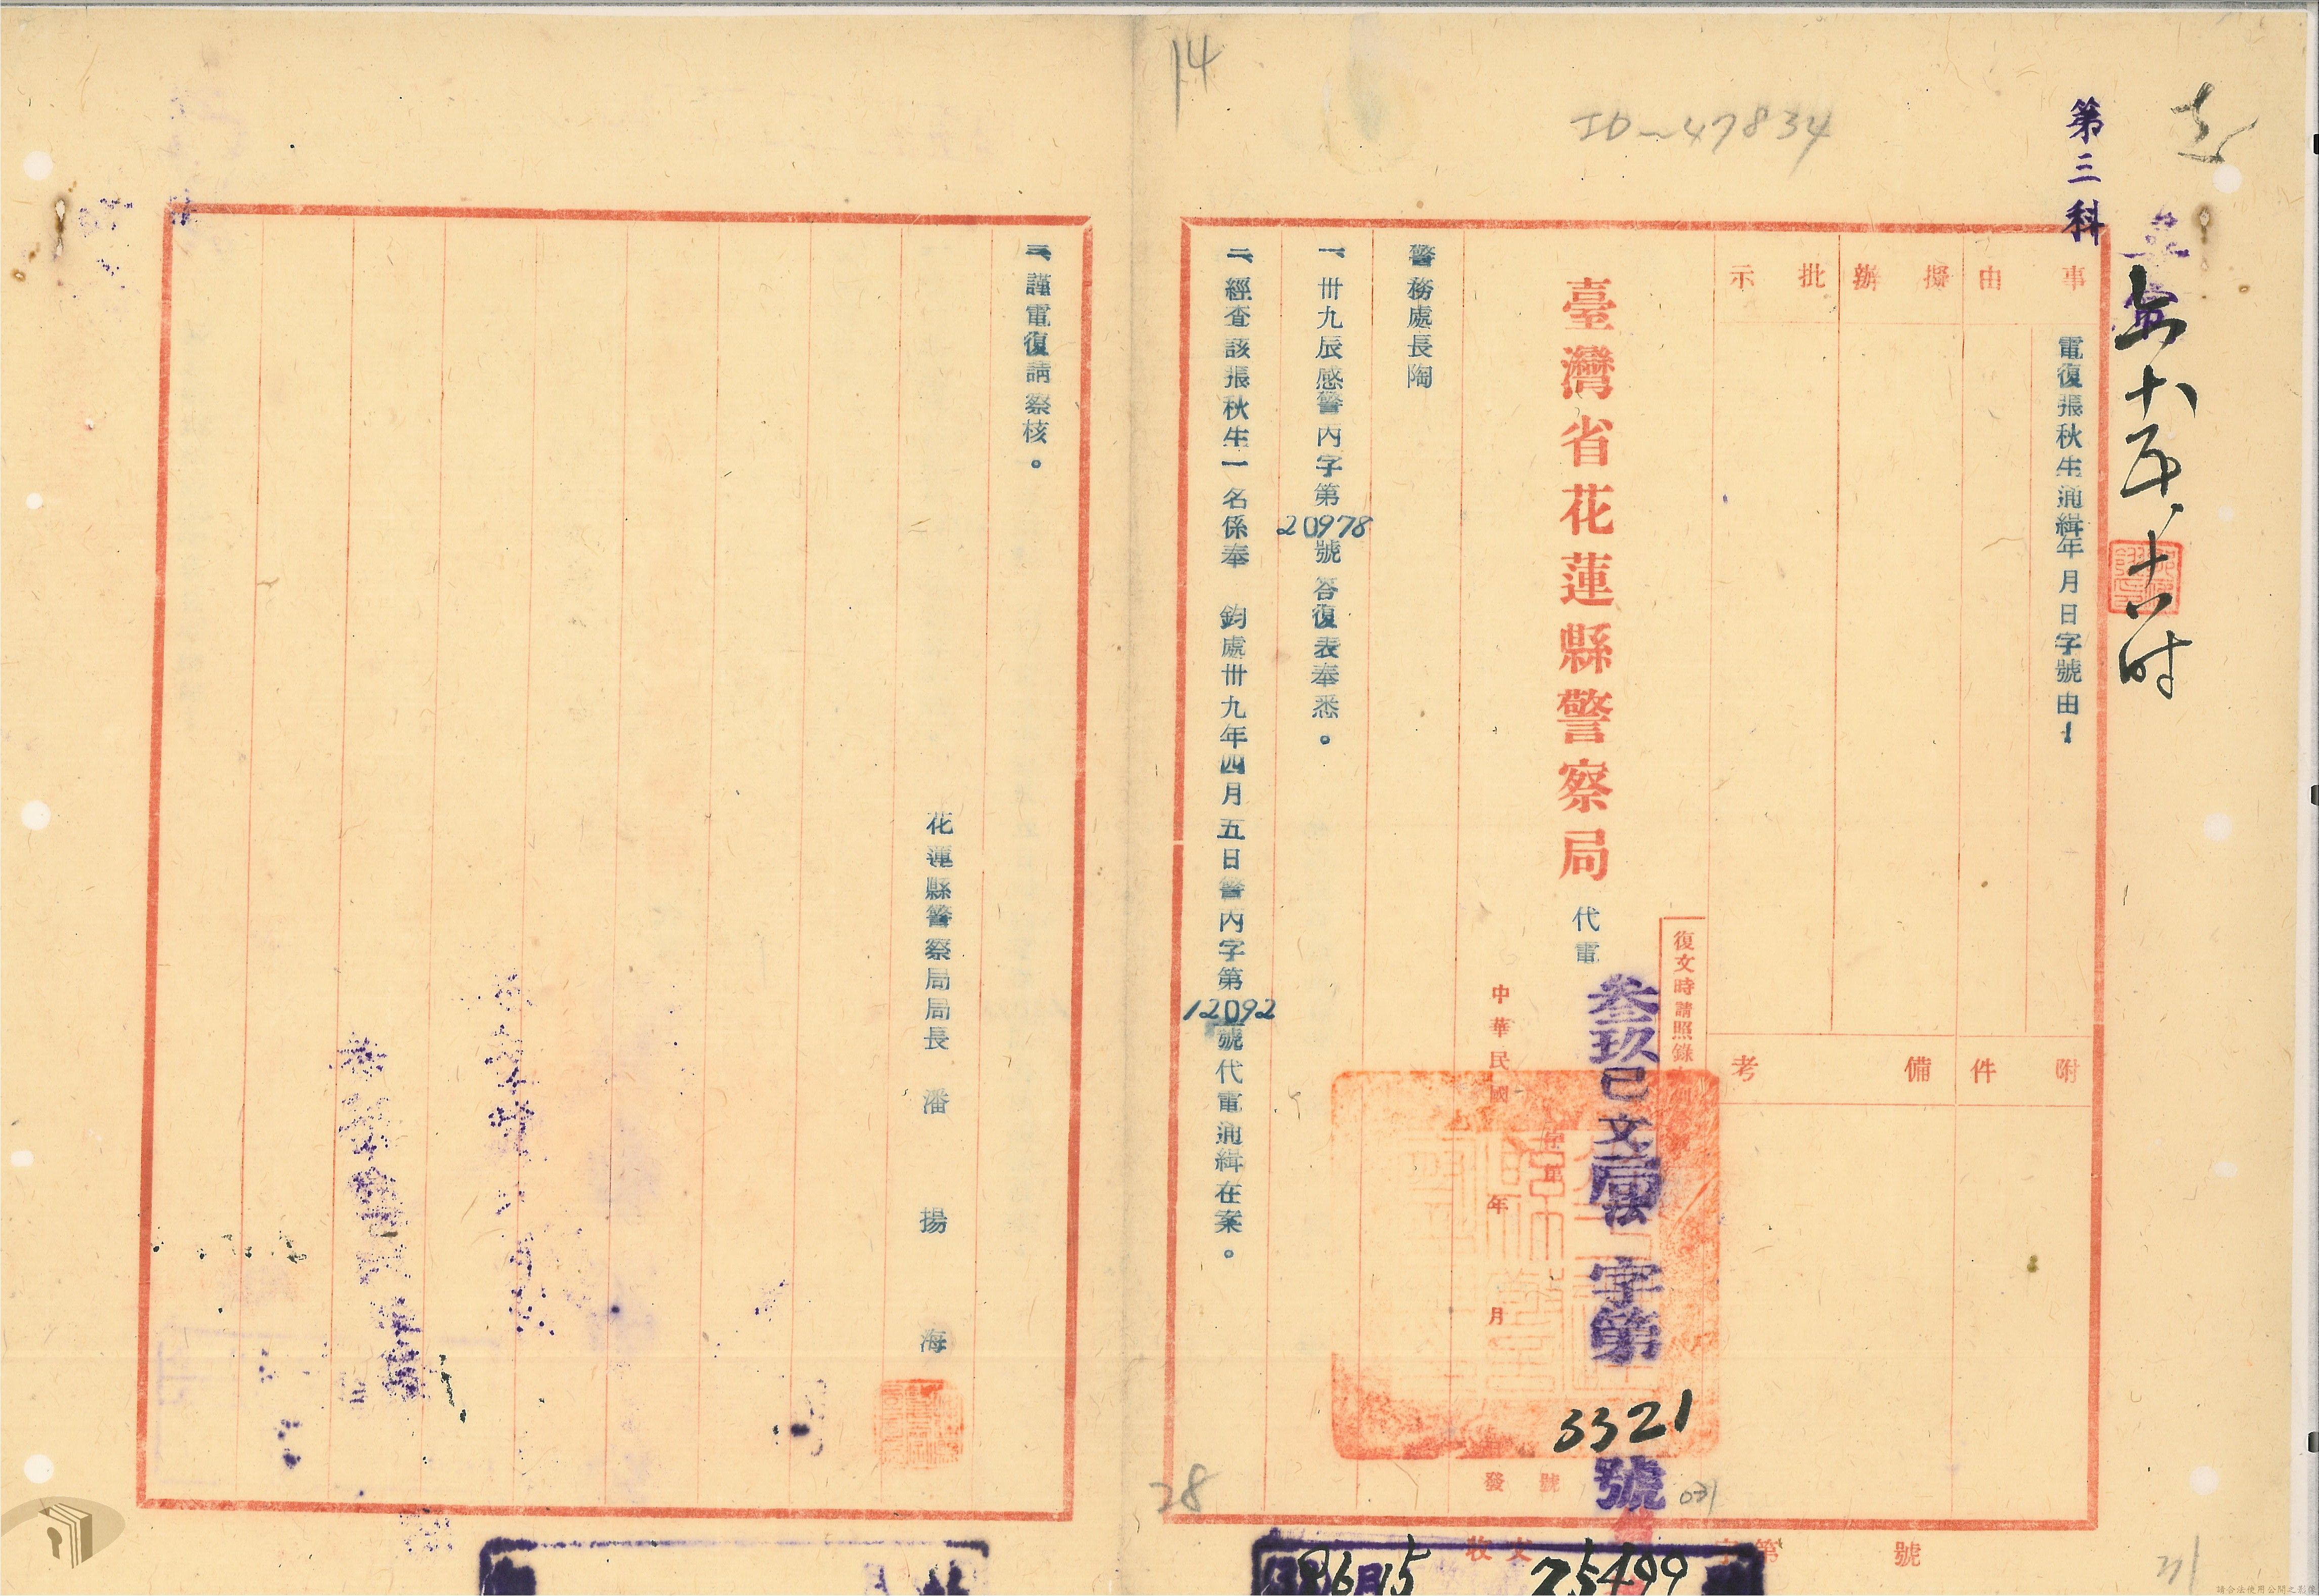 志
六十五、十八时
第三科
事由
電復張秋生通緝年月日字號由！
擬辦
批示
附件
備考
ID-47834
復文時請照錄
臺灣省花蓮縣警察局
代電
叁玖已文 字第3321號
中華民國 年 月
發 號
031
警務處長陶
一、卅九辰感警丙字第20978號答復表奉悉。
二、經查該張秋生一名係奉 鈞處卅九年四月五日警丙字第12092號代電通緝在案。
14
28
三、謹電復請察核。
花蓮縣警察局局長 潘 揚 海
收文 字第 號
6月15
25499
31
請合法使用公開之影像